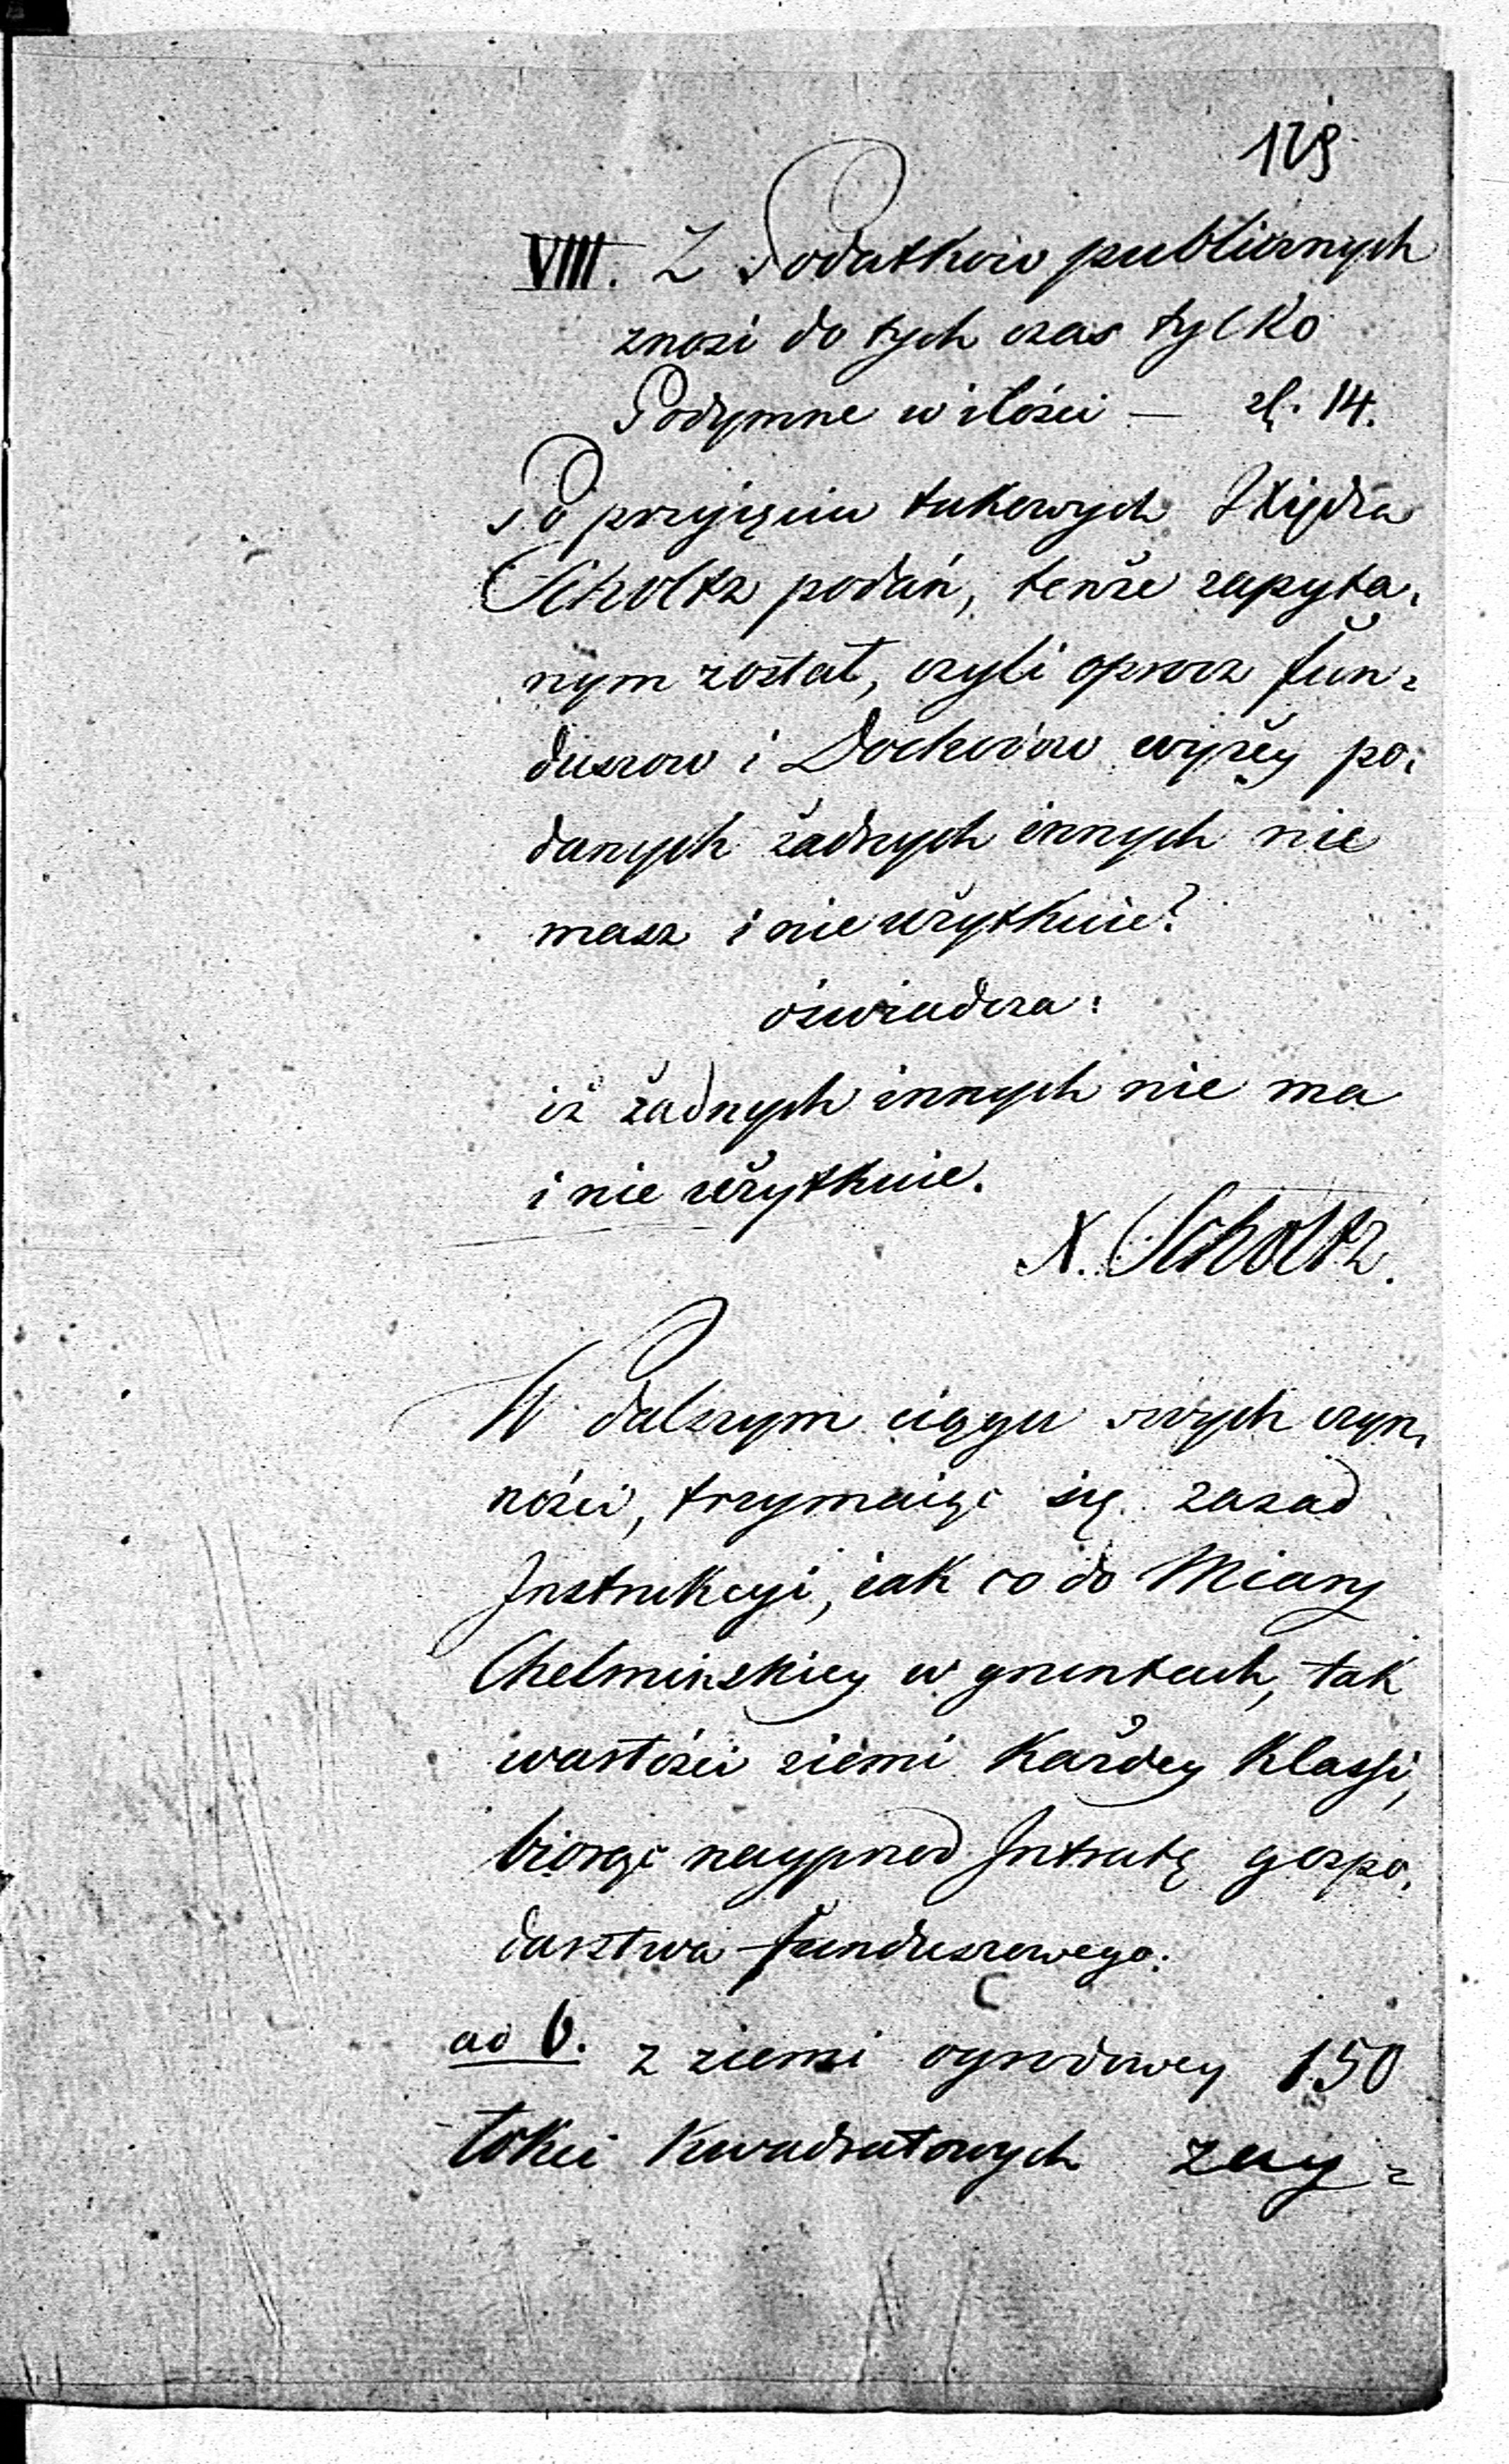 129
VIII. Z Podatkow publicznych
znosi do tych czas tylko
Podymne w ilości — zł. 14.
Po przyięciu takowych JXiędza
Scholtz podań, tenże zapyta,
nym został, czyli oprocz fun=
duszow i Dochodow wyżey po,
danych żadnych innych nie
masz i nie użytkuie?
oświadcza:
iż żadnych innych nie ma
i nie użytkuie.
X. Scholtz.
W dalszym ciągu swych czyn,
ności, trzymaiąc się zasad
Instrukcyi, iak co do Miary
Chelminskiey w gruntach, tak
wartości ziemi każdey klassy,
biorąc nayprzod Intratę gospo,
darstwa funduszowego:
ad 6. z ziemi ogrodowey 150
łokci kwadratowych zay=